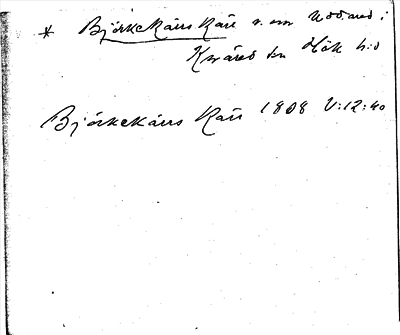 * Björkekärrs Kärr n. om Uddared i
Knäred sn Hök h:d
Björkekärrs Kärr 1808 V:12:40